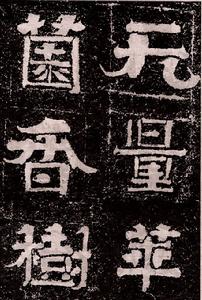 无量華
菌香樹